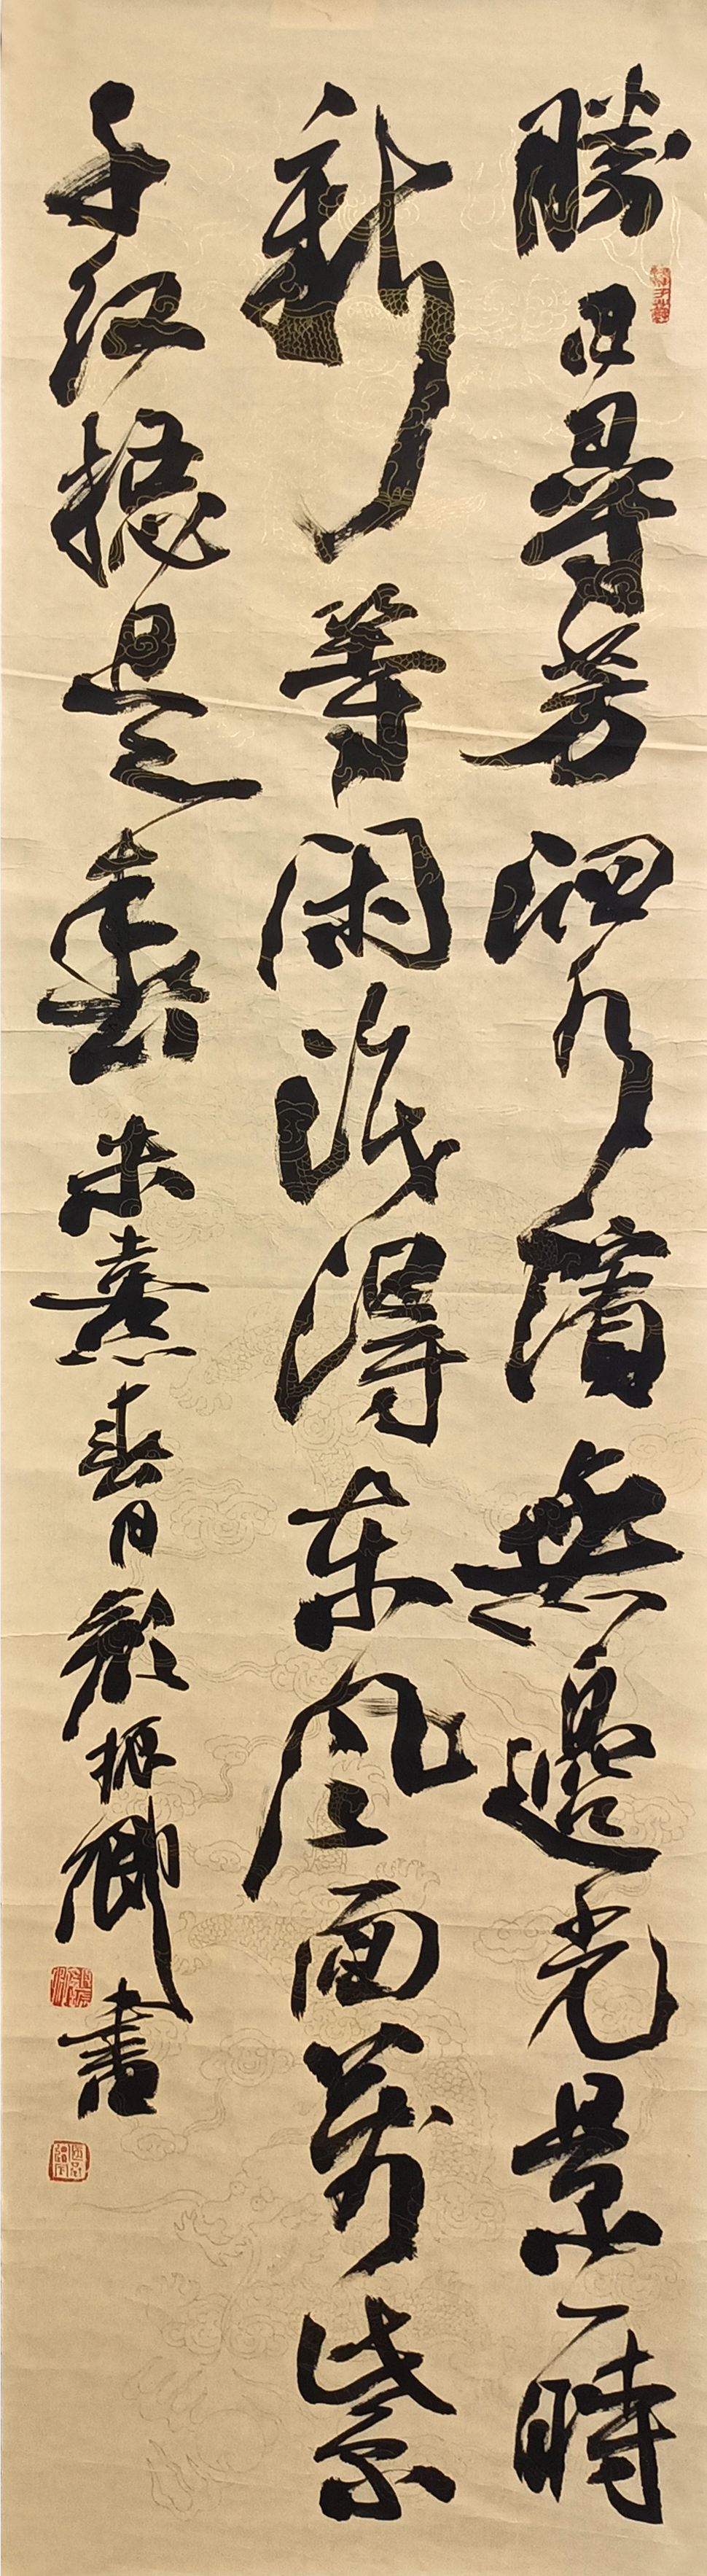 勝日尋芳泗水濱無邊光景一時
新等閑識得東風面萬紫
千紅摠是春朱熹春日顏振卿書